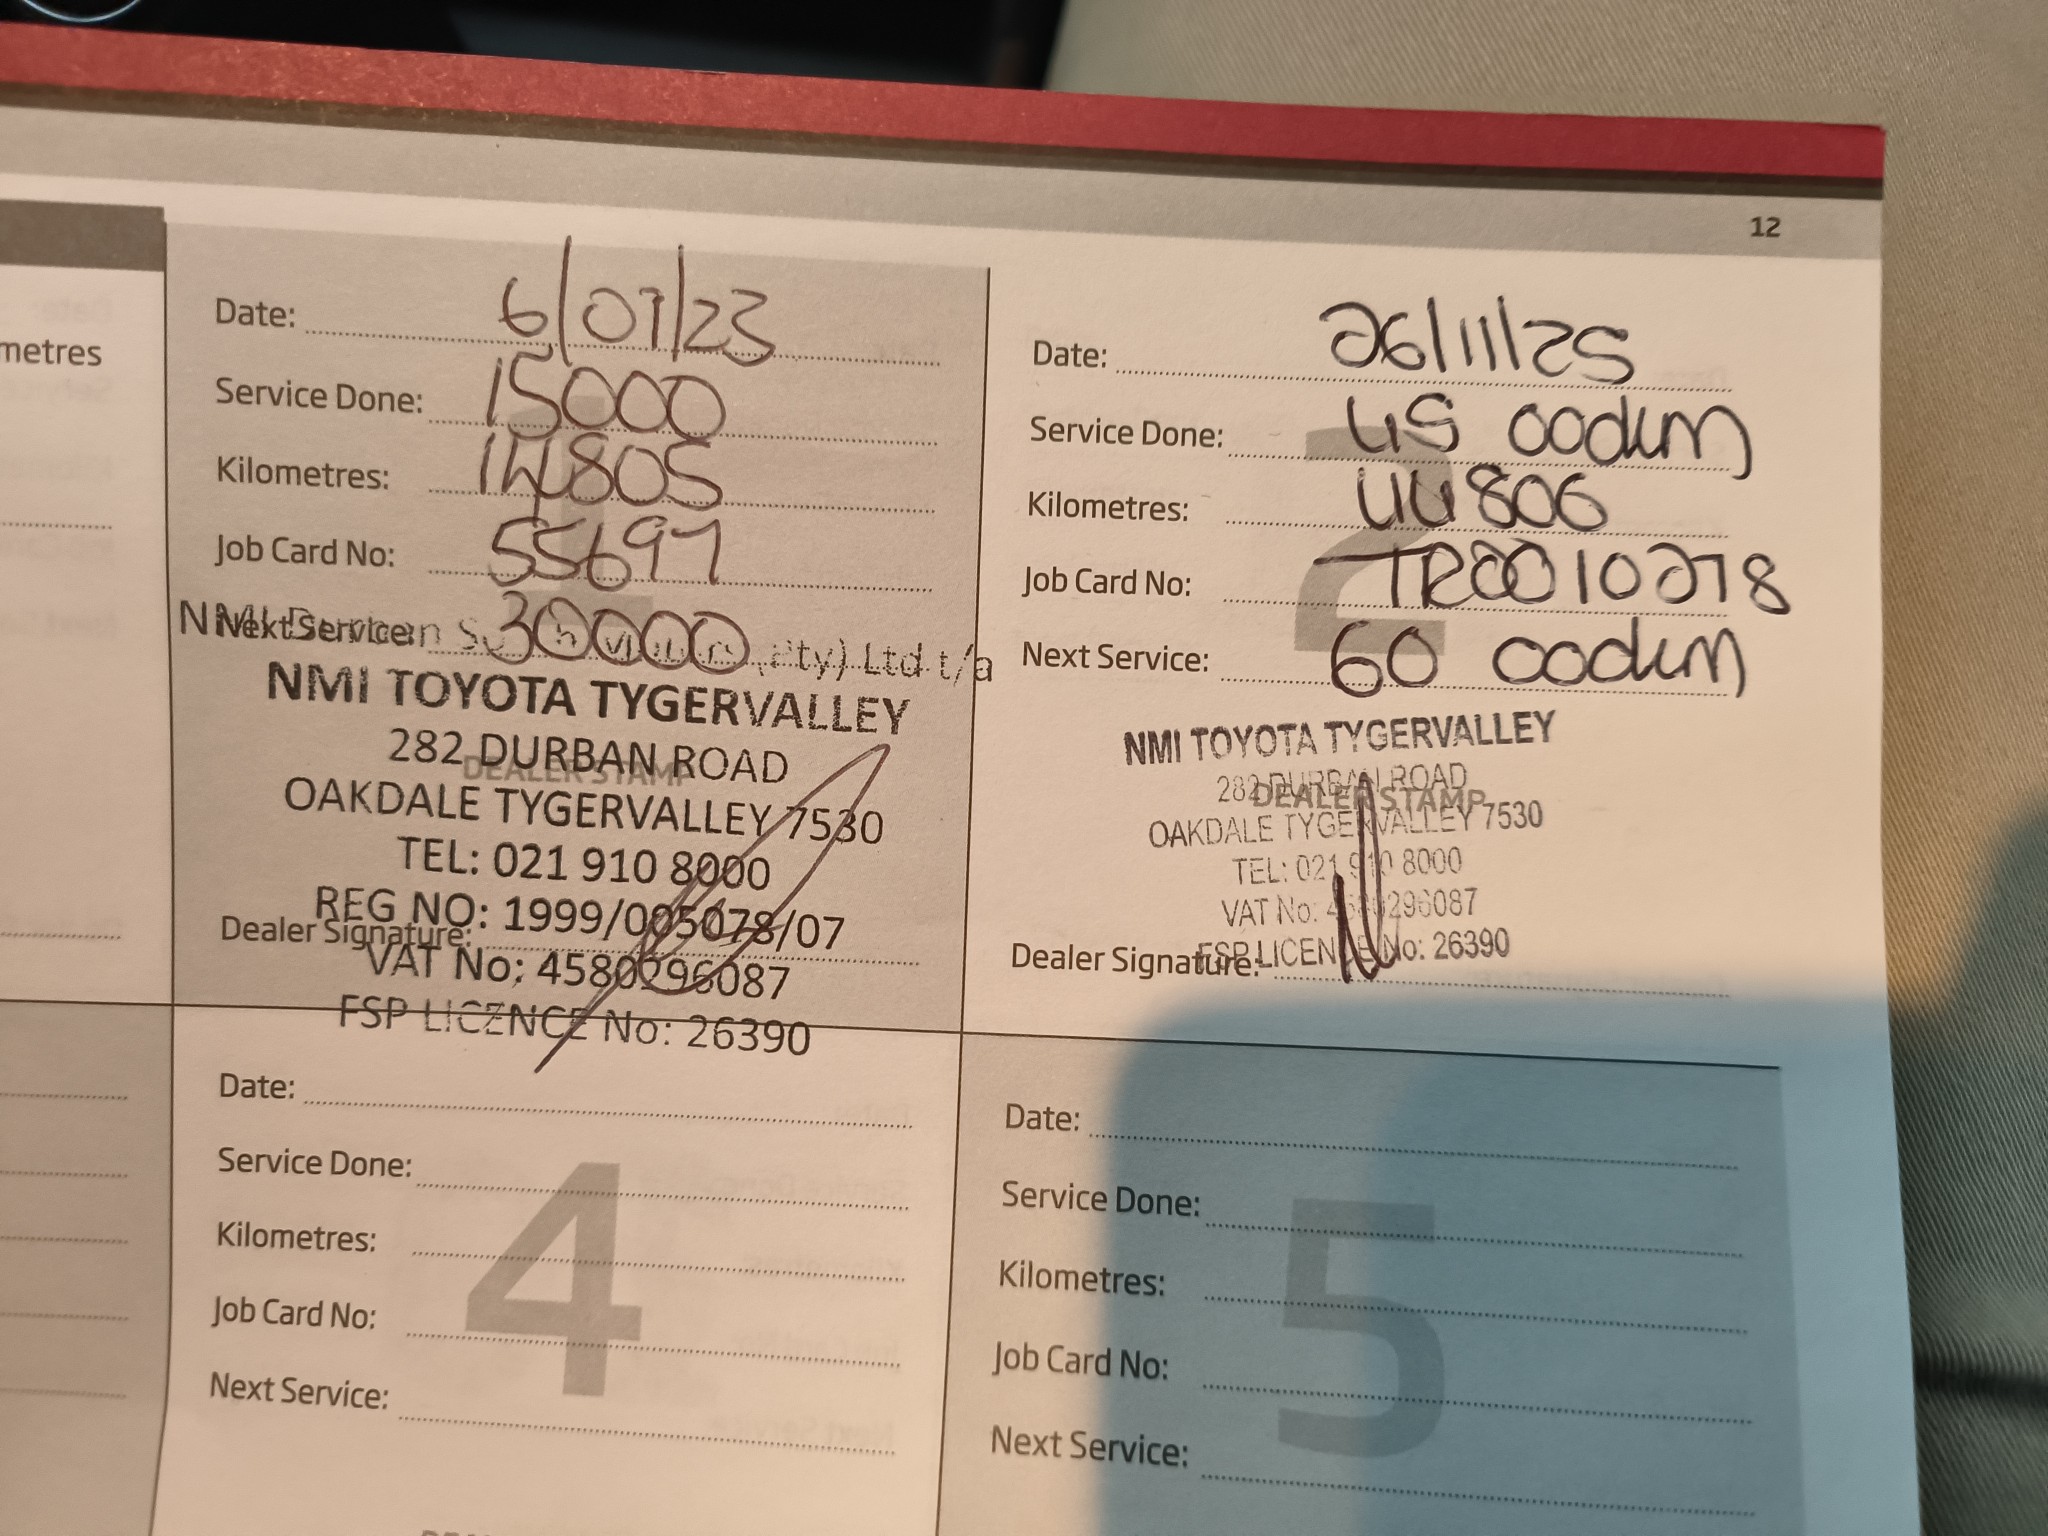 12
metres
Date: 6/07/23
Service Done: 15000
Kilometres: 14805
Job Card No: 55697
Next Service: 30000
(Pty) Ltd t/a
NMI TOYOTA TYGERVALLEY
282 DURBAN ROAD
DEALER STAMP
OAKDALE TYGERVALLEY 7530
TEL: 021 910 8000
REG NO: 1999/005078/07
Dealer Signature:
VAT No: 4580296087
FSP LICENCE No: 26390
1
Date: 26/11/25
Service Done: 45 000km
Kilometres: 44806
Job Card No: TR0010278
Next Service: 60 000km
NMI TOYOTA TYGERVALLEY
282 DURBAN ROAD
DEALER STAMP
OAKDALE TYGERVALLEY 7530
TEL: 021 910 8000
VAT No: 4580296087
FSP LICENCE No: 26390
Dealer Signature:
2
Date:
Service Done:
Kilometres:
Job Card No:
Next Service:
4
Date:
Service Done:
Kilometres:
Job Card No:
Next Service:
5